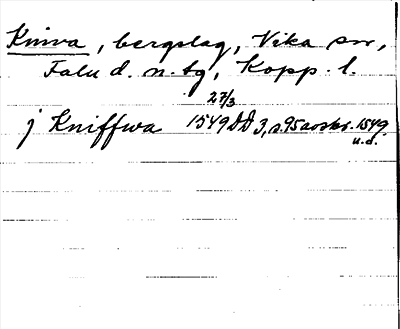 Kniva, bergslag, Vika sn,
Falu d. n. tg, Kopp. l.
j Kniffwa 1549 27/3 DD 3, s. 95 avskr. 1549
u.d.